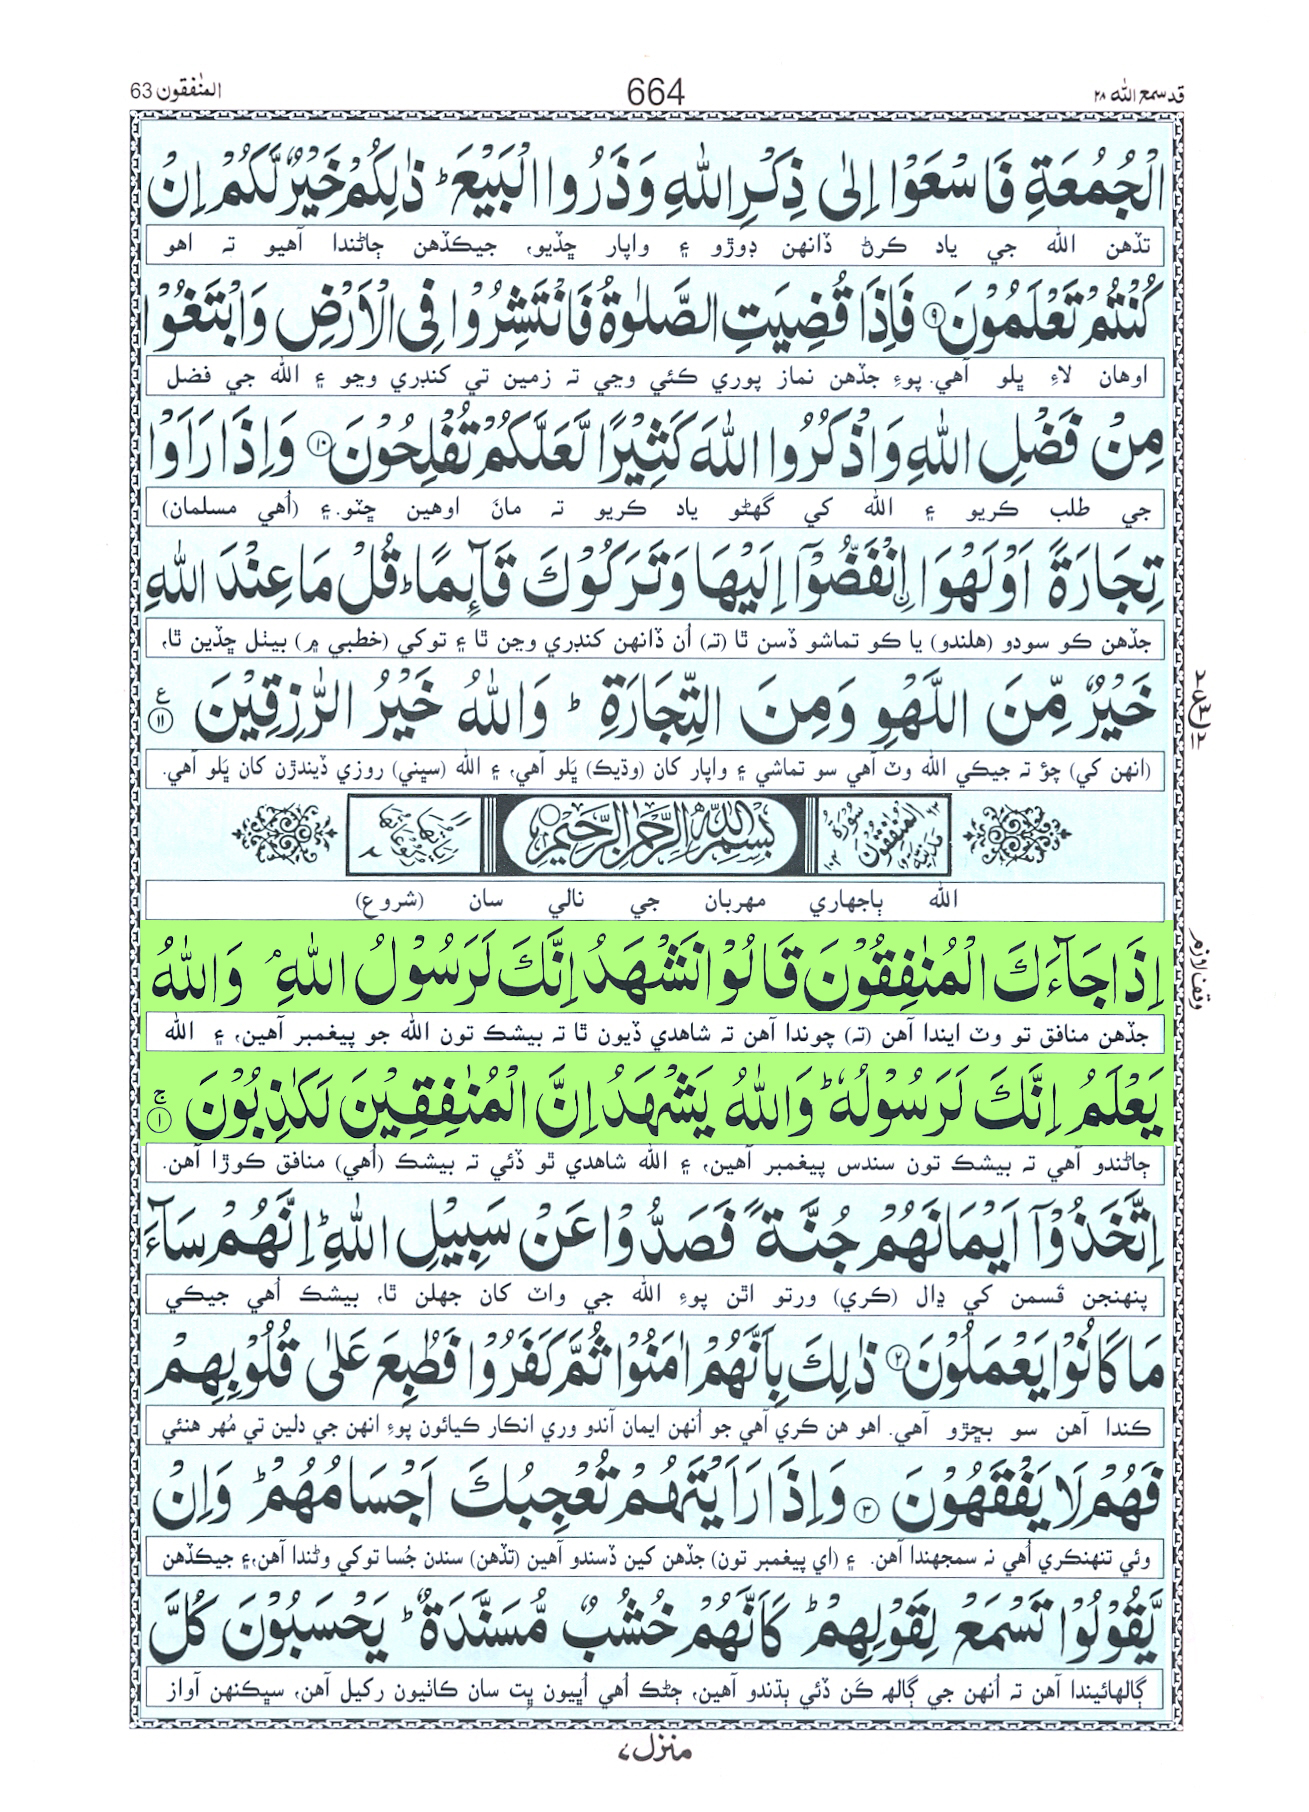 قد سمع الله ۲۸
664
المنٰفقون 63
الْجُمُعَةِ فَاسْعَوْا اِلٰى ذِكْرِ اللّٰهِ وَذَرُوا الْبَيْعَ ؕ ذٰلِكُمْ خَيْرٌ لَّكُمْ اِنْ
تڏهن الله جي ياد ڪرڻ ڏانهن ڊوڙو ۽ واپار ڇڏيو، جيڪڏهن ڄاڻندا آهيو تہ اهو
كُنْتُمْ تَعْلَمُوْنَ ۹ فَاِذَا قُضِيَتِ الصَّلٰوةُ فَانْتَشِرُوْا فِى الْاَرْضِ وَابْتَغُوْا
اوهان لاءِ ڀلو آهي. پوءِ جڏهن نماز پوري ڪئي وڃي تہ زمين تي کنڊري وڃو ۽ الله جي فضل
مِنْ فَضْلِ اللّٰهِ وَاذْكُرُوا اللّٰهَ كَثِيْرًا لَّعَلَّكُمْ تُفْلِحُوْنَ ۱۰ وَاِذَا رَاَوْا
جي طلب ڪريو ۽ الله کي گھڻو ياد ڪريو تہ مانَ اوهين ڇٽو. ۽ (اُهي مسلمان)
تِجَارَةً اَوْ لَهْوَا اِۨنْفَضُّوْۤا اِلَيْهَا وَتَرَكُوْكَ قَآئِمًا ؕ قُلْ مَا عِنْدَ اللّٰهِ
جڏهن ڪو سودو (هلندو) يا ڪو تماشو ڏسن ٿا (تہ) اُن ڏانهن کنڊري وڃن ٿا ۽ توکي (خطبي ۾) بيٺل ڇڏين ٿا،
خَيْرٌ مِّنَ اللَّهْوِ وَمِنَ التِّجَارَةِ ؕ وَاللّٰهُ خَيْرُ الرّٰزِقِيْنَ ۱۱ ع
(انهن کي) چؤ تہ جيڪي الله وٽ آهي سو تماشي ۽ واپار کان (وڌيڪ) ڀلو آهي، ۽ الله (سڀني) روزي ڏيندڙن کان ڀلو آهي.
سُوْرَةُ الْمُنٰفِقُوْنَ مَدَنِيَّةٌ
بِسْمِ اللّٰهِ الرَّحْمٰنِ الرَّحِيْمِ
اٰيَاتُهَا ۱۱ رُكُوْعَاتُهَا ۲
الله ٻاجهاري مهربان جي نالي سان (شروع)
اِذَا جَآءَكَ الْمُنٰفِقُوْنَ قَالُوْا نَشْهَدُ اِنَّكَ لَرَسُوْلُ اللّٰهِ ۘ وَاللّٰهُ
وقف لازم
جڏهن منافق تو وٽ ايندا آهن (تہ) چوندا آهن تہ شاهدي ڏيون ٿا تہ بيشڪ تون الله جو پيغمبر آهين، ۽ الله
يَعْلَمُ اِنَّكَ لَرَسُوْلُهٗ ؕ وَاللّٰهُ يَشْهَدُ اِنَّ الْمُنٰفِقِيْنَ لَكٰذِبُوْنَ ۱ ج
ڄاڻندو آهي تہ بيشڪ تون سندس پيغمبر آهين، ۽ الله شاهدي ٿو ڏئي تہ بيشڪ (اُهي) منافق ڪوڙا آهن.
اِتَّخَذُوْۤا اَيْمَانَهُمْ جُنَّةً فَصَدُّوْا عَنْ سَبِيْلِ اللّٰهِ ؕ اِنَّهُمْ سَآءَ
پنهنجن قسمن کي ڍال (ڪري) ورتو اٿن پوءِ الله جي واٽ کان جهلن ٿا، بيشڪ اُهي جيڪي
مَا كَانُوْا يَعْمَلُوْنَ ۲ ذٰلِكَ بِاَنَّهُمْ اٰمَنُوْا ثُمَّ كَفَرُوْا فَطُبِعَ عَلٰى قُلُوْبِهِمْ
ڪندا آهن سو بڇڙو آهي. اهو هن ڪري آهي جو اُنهن ايمان آندو وري انڪار ڪيائون پوءِ انهن جي دلين تي مُهر هنئي
فَهُمْ لَا يَفْقَهُوْنَ ۳ وَاِذَا رَاَيْتَهُمْ تُعْجِبُكَ اَجْسَامُهُمْ ؕ وَاِنْ
وئي تنهنڪري اُهي نہ سمجهندا آهن. ۽ (اي پيغمبر تون) جڏهن کين ڏسندو آهين (تڏهن) سندن جُسا توکي وڻندا آهن، ۽ جيڪڏهن
يَّقُوْلُوْا تَسْمَعْ لِقَوْلِهِمْ ؕ كَاَنَّهُمْ خُشُبٌ مُّسَنَّدَةٌ ؕ يَحْسَبُوْنَ كُلَّ
ڳالهائيندا آهن تہ اُنهن جي ڳالھ ڪَن ڏئي ٻڌندو آهين، ڄڻڪ اُهي اُڀيون ڀت سان ڪاٺيون رکيل آهن، سڀڪنهن آواز
منزل ۷